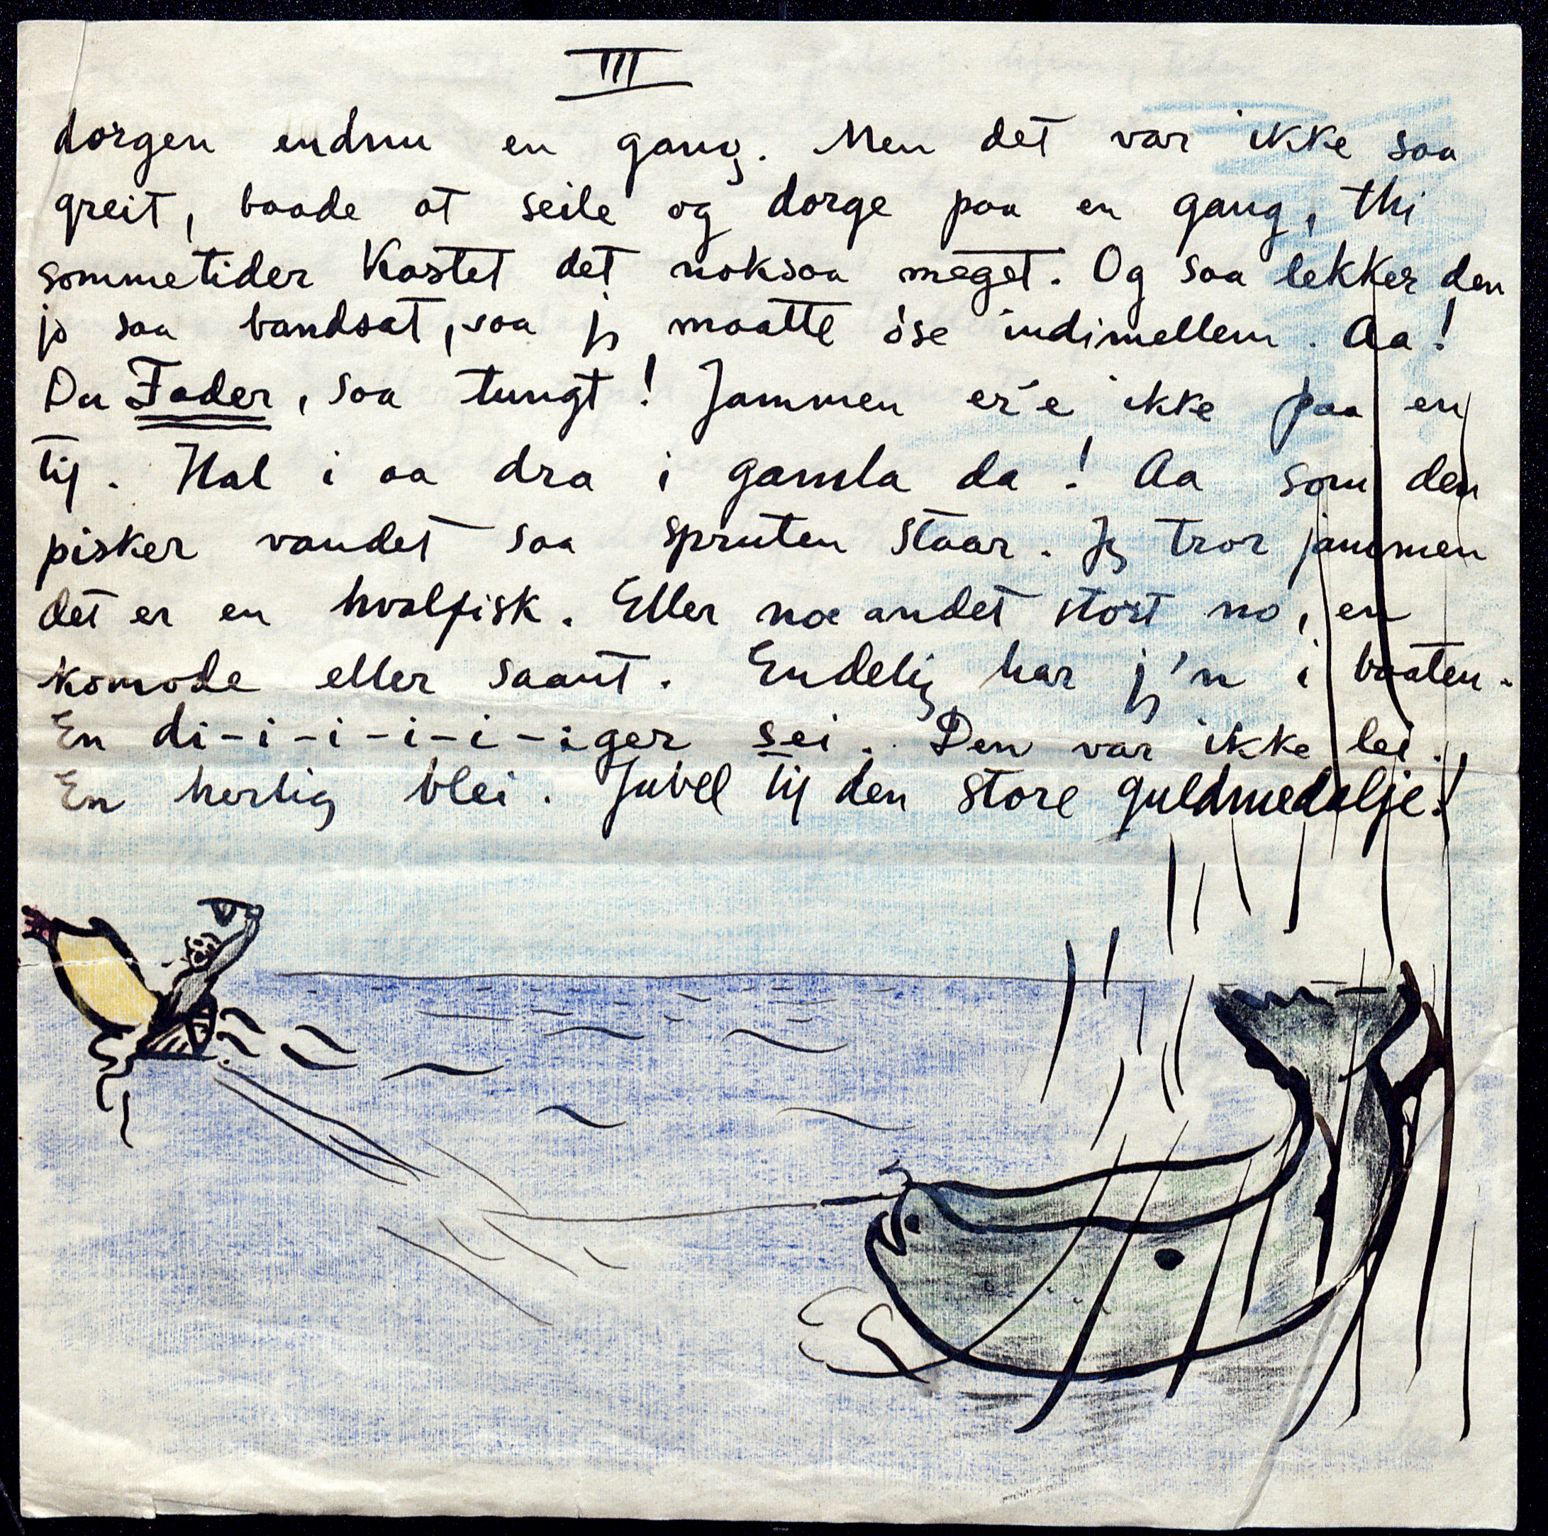 III
dorgen endnu en gang. Men det var ikke saa
greit, baade at seile og dorge paa en gang, thi
sommetider kastet det noksaa meget. Og saa lekker den
jo saa bandsat, saa jeg maatte öse indimellem. Aa!
Du Fader, saa tungt! Jammen er'e ikke paa en
tij. Hal i aa dra i gamla da! Aa som den
pisker vandet saa spruten staar. Jeg tror jammen
det er en hvalfisk. Eller noe andet stort no, en
komode eller saant. Endelig har jeg'n i baaten.
En di-i-i-i-i-iger sei. Den var ikke lei.
En herlig blei. Jubel tij den store guldmedalje!